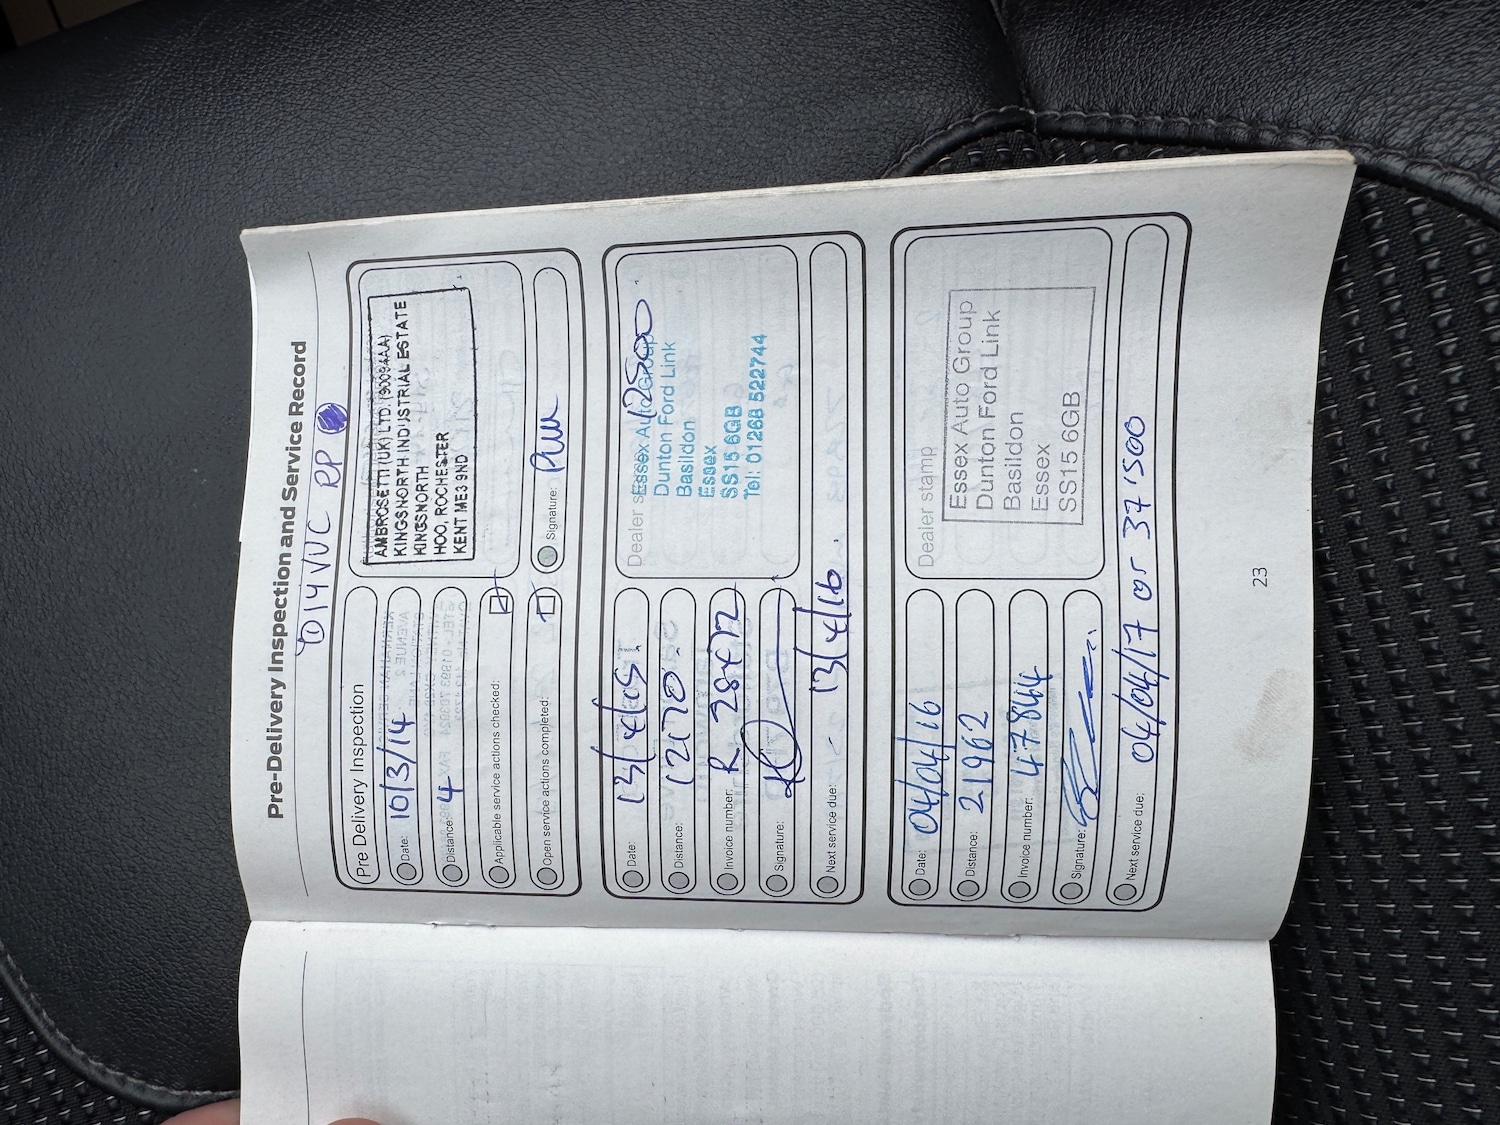 Pre-Delivery Inspection and Service Record
RP
Pre Delivery Inspection
Date: 10/3/14
Distance: 4
Applicable service actions checked:
Open service actions completed:
AMBROSETTI (UK) LTD. (90094AA)
KINGSNORTH INDUSTRIAL ESTATE
KINGSNORTH
HOO, ROCHESTER
KENT ME3 9ND
Signature:
Date:
Distance: 12170
Invoice number: R 28472
Signature:
Next service due: 13/4/16.
Dealer
Essex Auto Group
Dunton Ford Link
Basildon
Essex
SS15 6GB
Tel: 01268 522744
Date: 04/04/16
Distance: 21962
Invoice number: 47844
Signature:
Next service due: 04/04/17 or 37'500
Dealer stamp
Essex Auto Group
Dunton Ford Link
Basildon
Essex
SS15 6GB
23